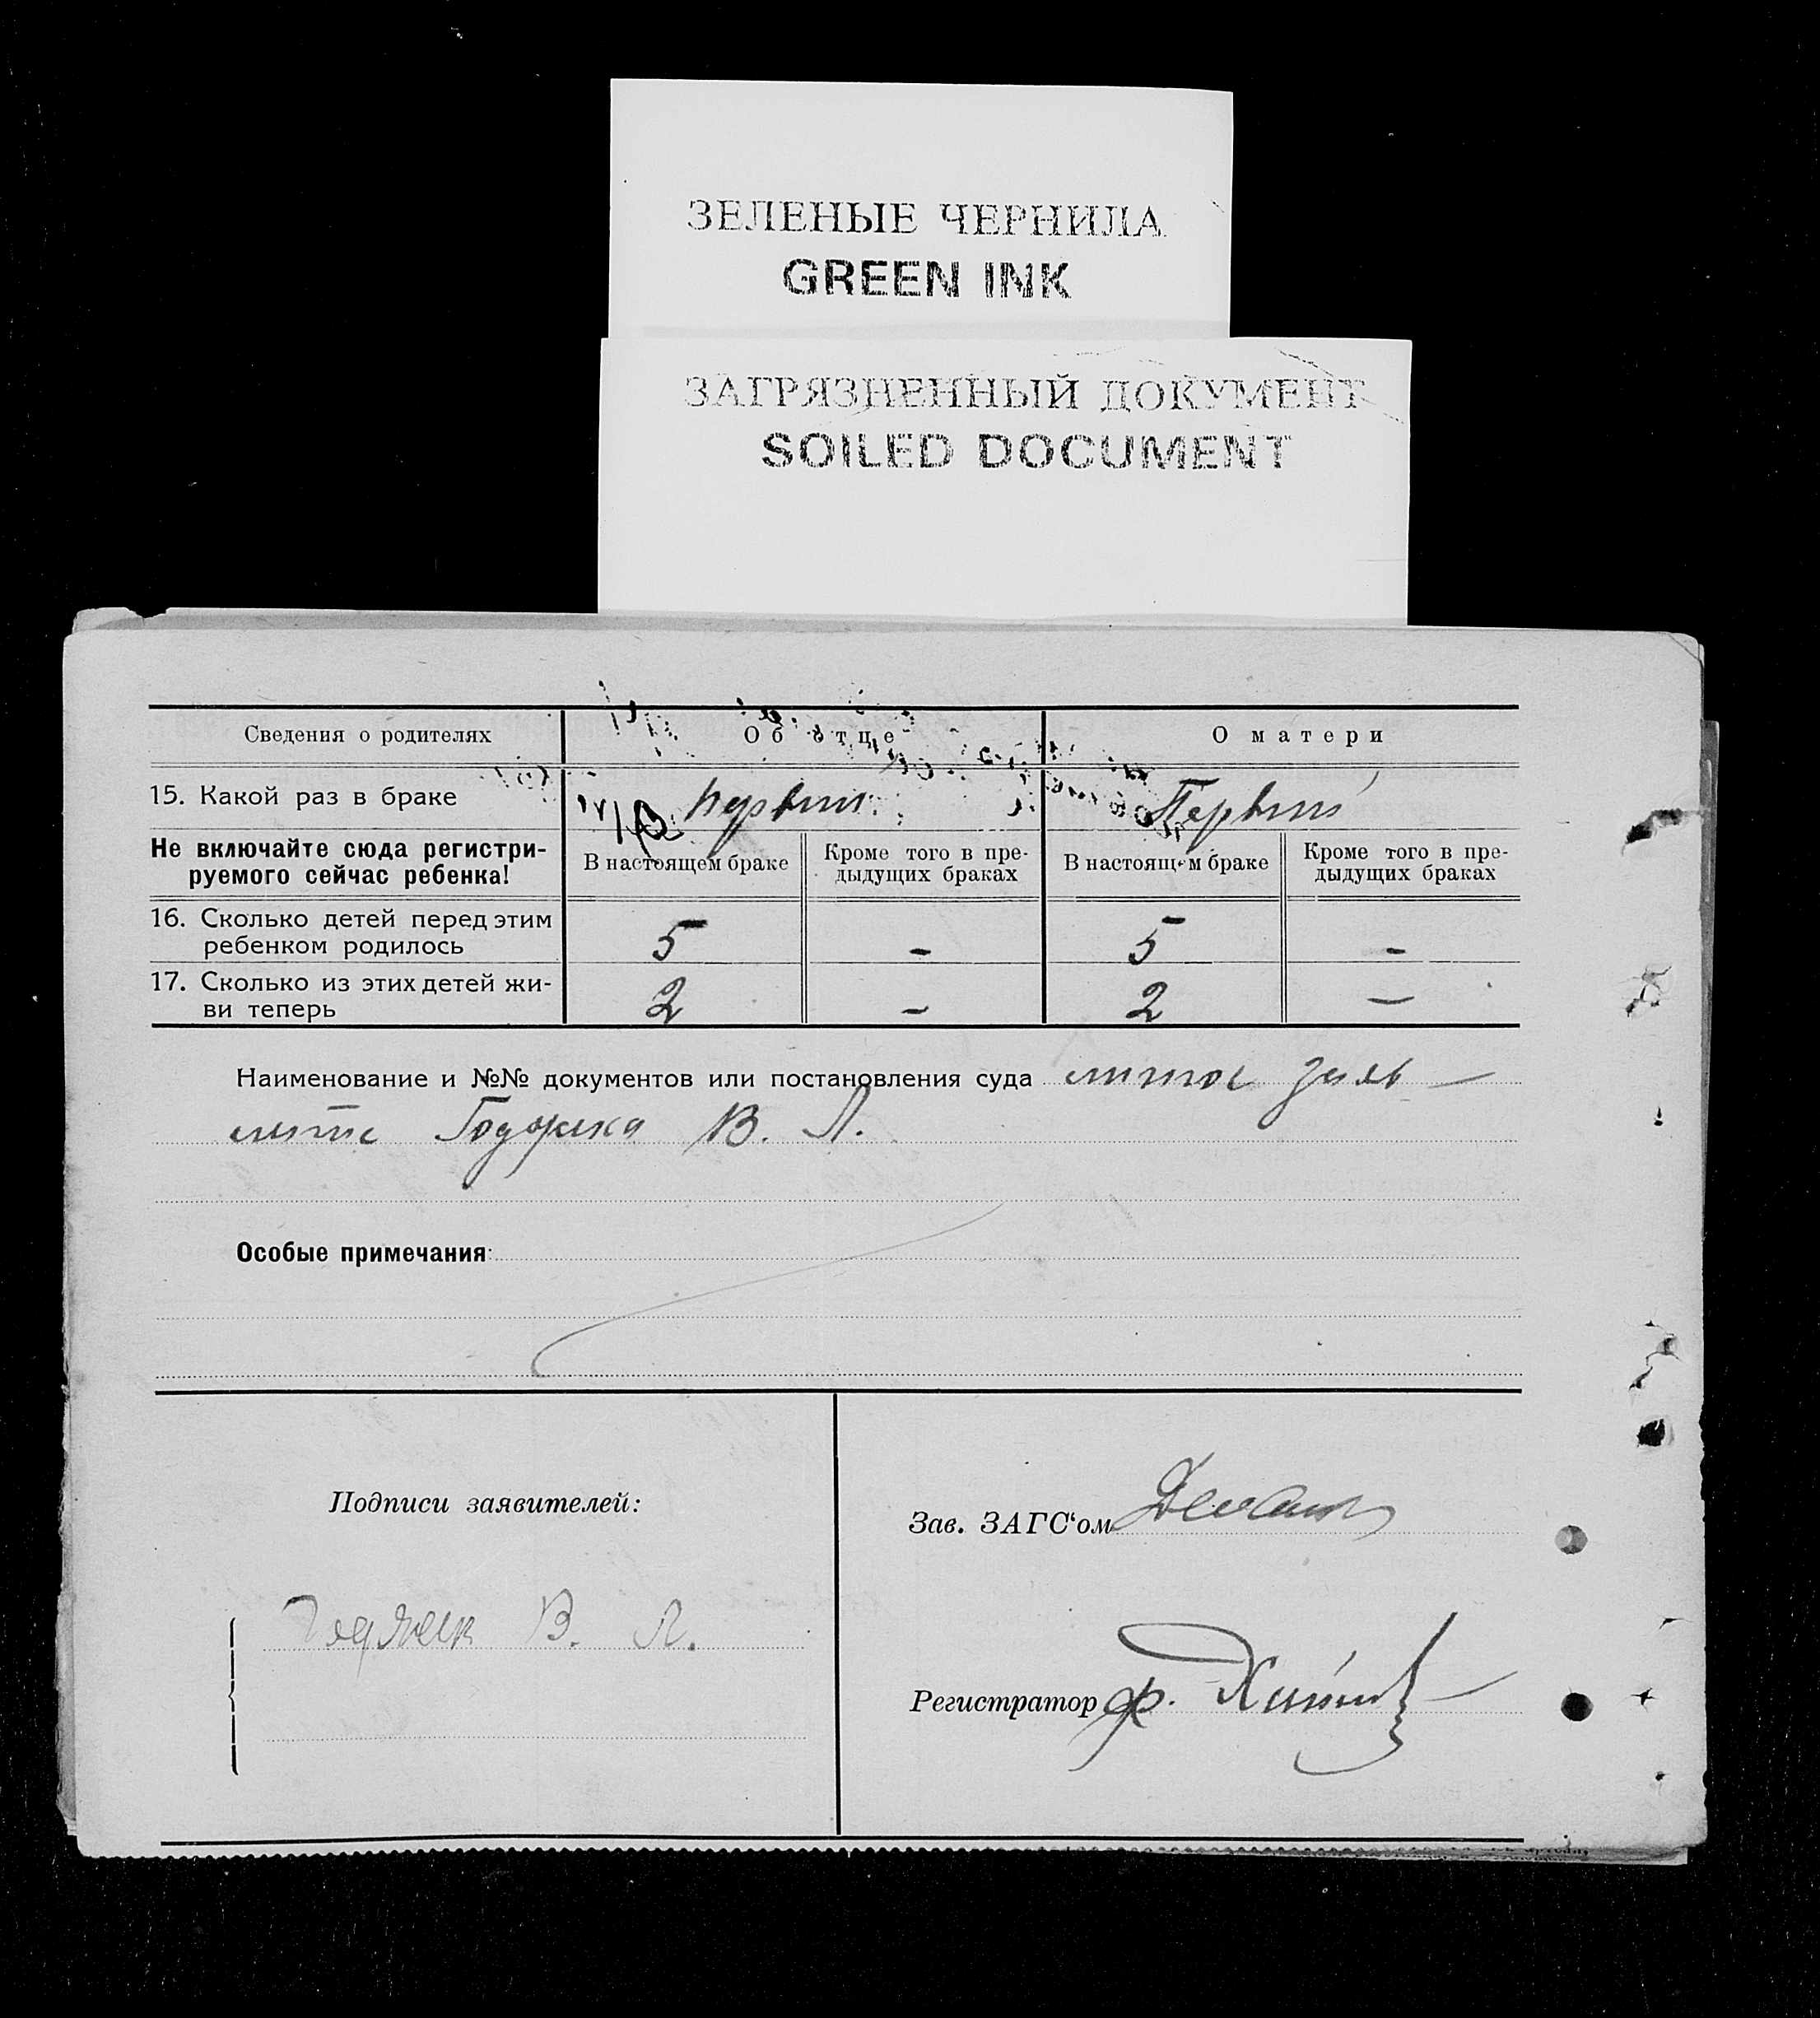 ЗЕЛЕНЫЕ ЧЕРНИЛА
GREEN INK
ЗАГРЯЗНЕННЫЙ ДОКУМЕНТ
SOILED DOCUMENT
Сведения о родителях
Об отце
О матери
15. Какой раз в браке
первый
Первый
Не включайте сюда регистри-
руемого сейчас ребенка!
В настоящем браке
Кроме того в пре-
дыдущих браках
В настоящем браке
Кроме того в пре-
дыдущих браках
16. Сколько детей перед этим
ребенком родилось
5 - 5 -
17. Сколько из этих детей жи-
ви теперь
2 - 2 -
Наименование и №№ документов или постановления суда
В. Л.
Особые примечания:
Подписи заявителей:
В. Л.
Зав. ЗАГС‘ом
Регистратор